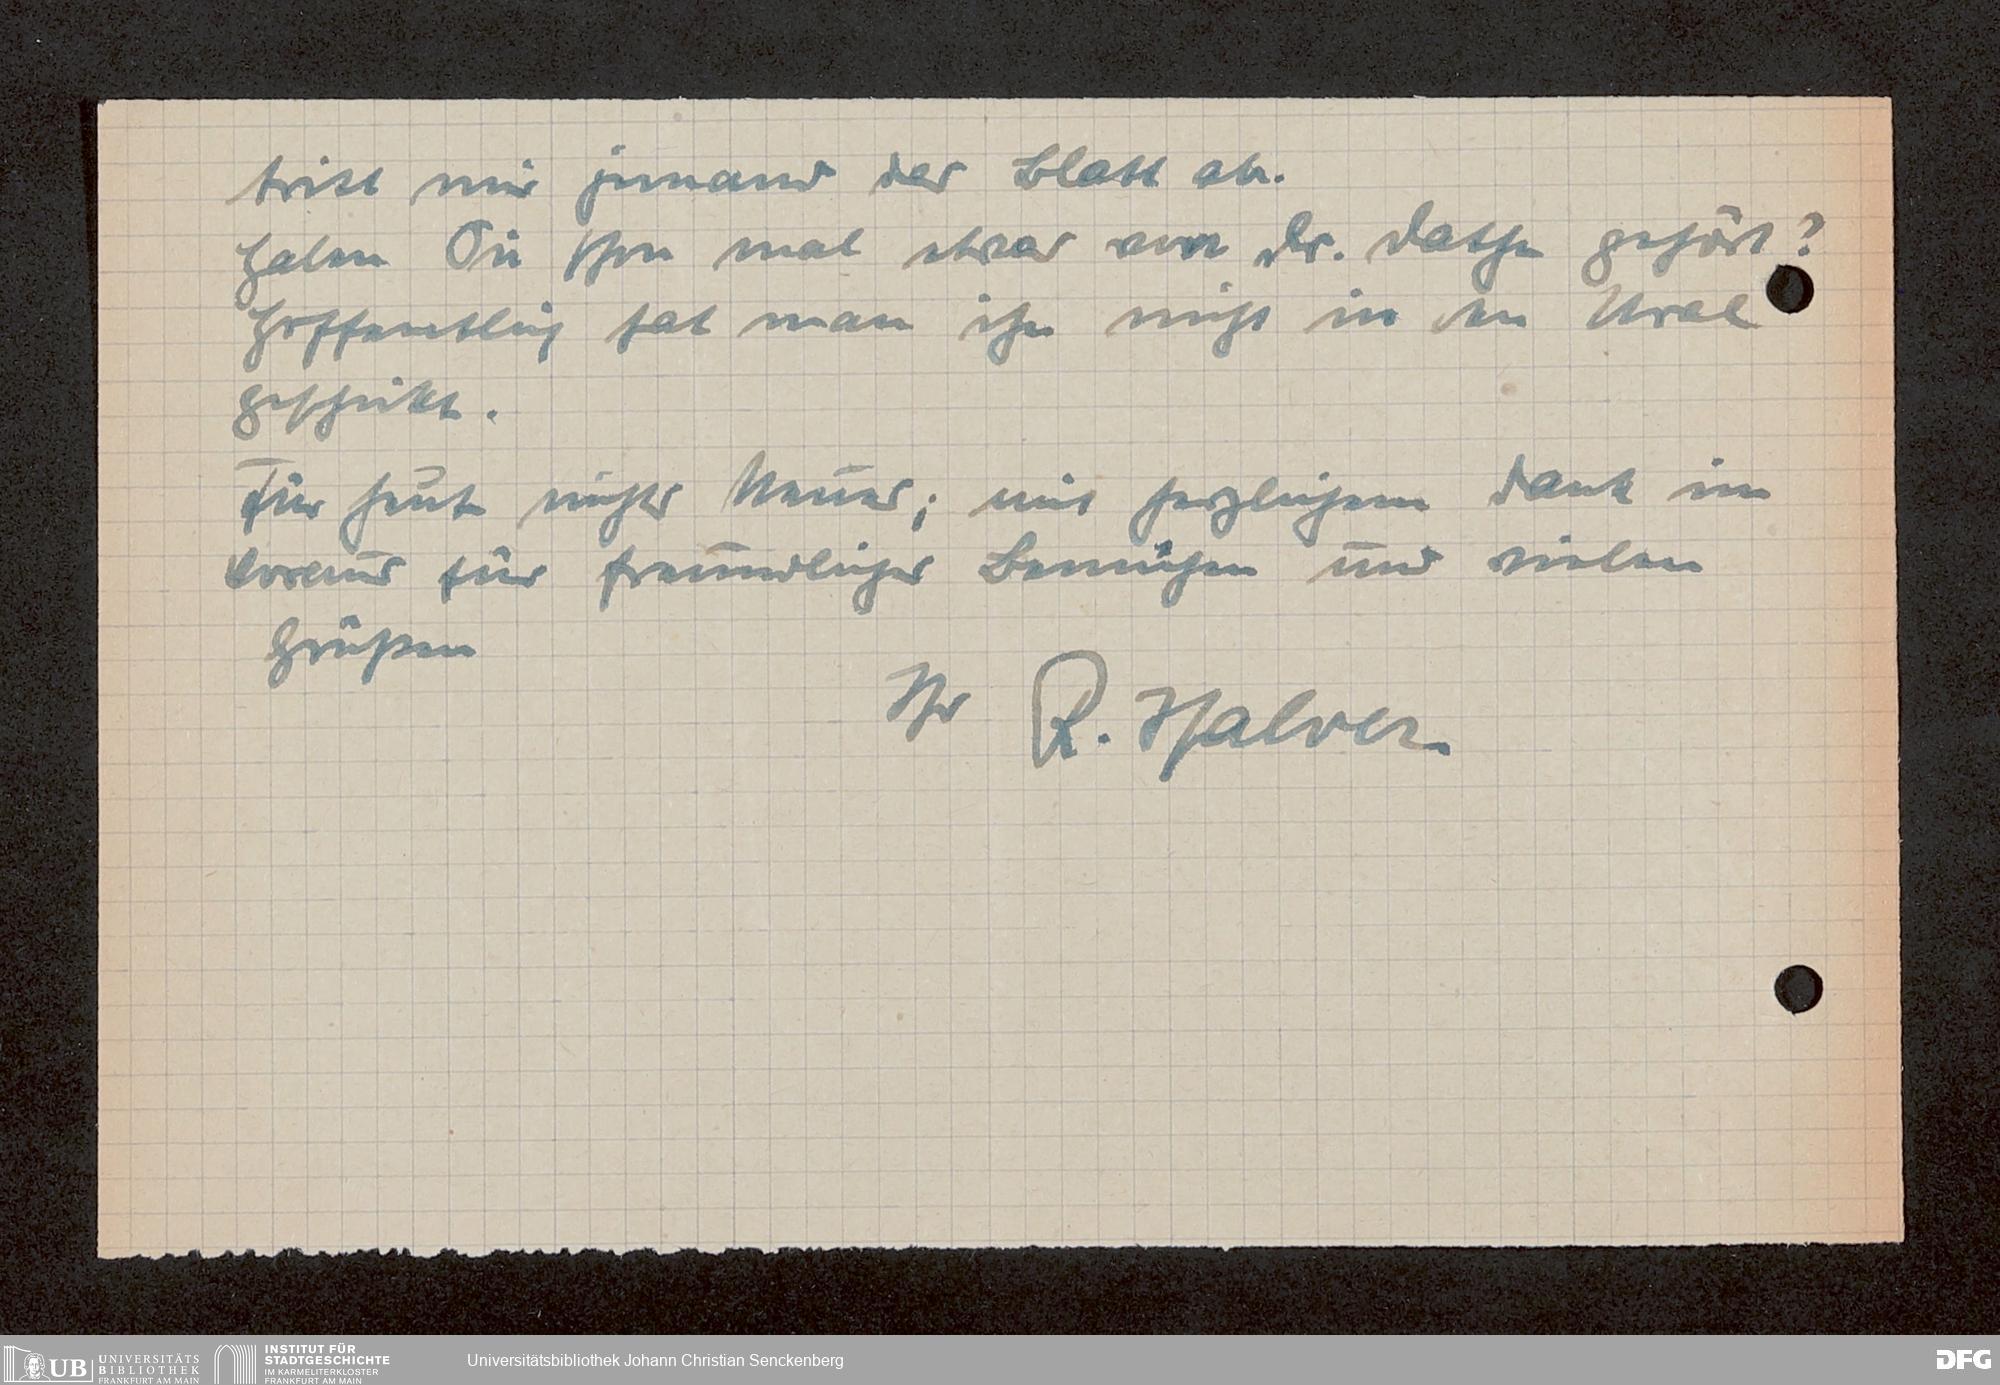 tritt mir jemand das Blatt ab.
Haben Sie schon mal etwas von Dr. Dathe gehört?
Hoffentlich hat man ihn nicht in den Ural
geschickt.
Für heute nichts Neues; mit herzlichem Dank im
Voraus für freundliches Bemühen und vielen
Grüßen
Ihr R. Halver.
UB UNIVERSITÄTS BIBLIOTHEK FRANKFURT AM MAIN
INSTITUT FÜR STADTGESCHICHTE IM KARMELITERKLOSTER FRANKFURT AM MAIN
Universitätsbibliothek Johann Christian Senckenberg
DFG